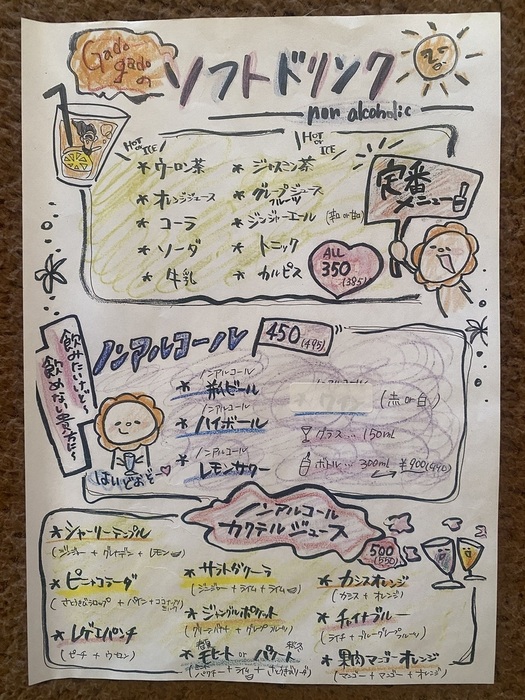 Gado gadoの
ソフトドリンク
non alcoholic
HOT or ICE
HOT or ICE
* ウーロン茶
* ジャスミン茶
* オレンジジュース
* グレープフルーツジュース
* コーラ
* ジンジャーエール
* ソーダ
* トニック
* 牛乳
* カルピス
定番メニュー
ALL 350 (385)
飲みたいけど〜
飲めない貴方に〜
ノンアルコール
450 (495)
ノンアルコール
* ビール
ノンアルコール
* ハイボール
ノンアルコール
* レモンサワー
ノンアルコール
(赤 or 白)
グラス… 150ml
ボトル… 300ml ¥900(990)
はいどおぞ〜
ノンアルコール
カクテルジュース
500 (550)
* シャーリーテンプル
(ジンジャー + グレナデン + レモン)
* ピニャコラーダ
* レゲエパンチ
(ピーチ + ウーロン)
* サラトガクーラ
(ジンジャー + ライム + ライム)
* ジャングルポケット
* モヒート or
* カシスオレンジ
(カシス + オレンジ)
* チャイナブル
(ライチ + ブルー グレープフルーツ)
* 果肉マンゴーオレンジ
(マンゴー + マンゴー + オレンジ)